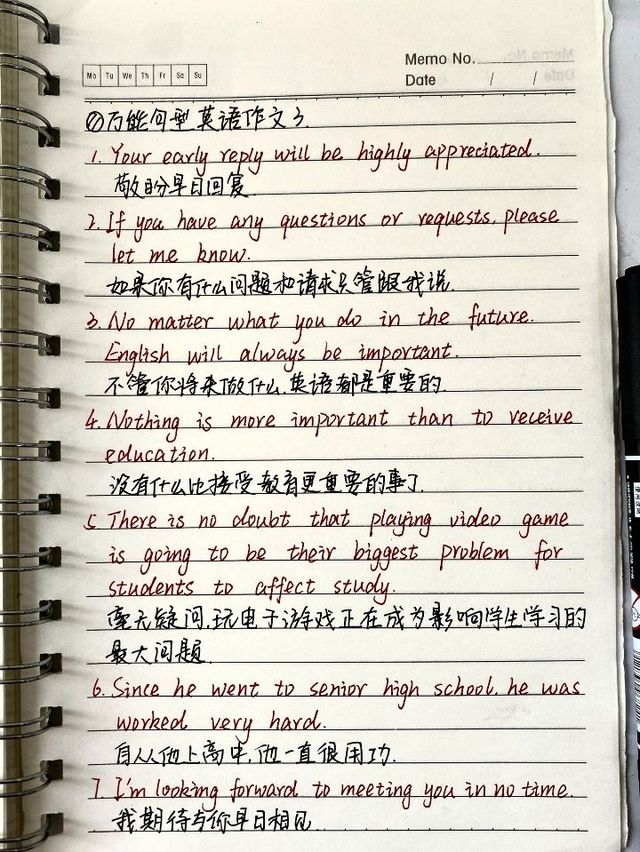 Memo No.
Mo Tu We Th Fr Sa Su
Date / /
②万能句型英语作文3.
1. Your early reply will be highly appreciated.
敬盼早日回复
2. If you have any questions or requests, please
let me know.
如果你有什么问题和请求只管跟我说.
3. No matter what you do in the future.
English will always be important.
不管你将来做什么,英语都是重要的
4. Nothing is more important than to receive
education.
没有什么比接受教育更重要的事了.
5. There is no doubt that playing video game
is going to be their biggest problem for
students to affect study.
毫无疑问,玩电子游戏正在成为影响学生学习的
最大问题.
6. Since he went to senior high school, he was
worked very hard.
自从他上高中,他一直很用功.
7. I'm looking forward to meeting you in no time.
我期待与你早日相见.